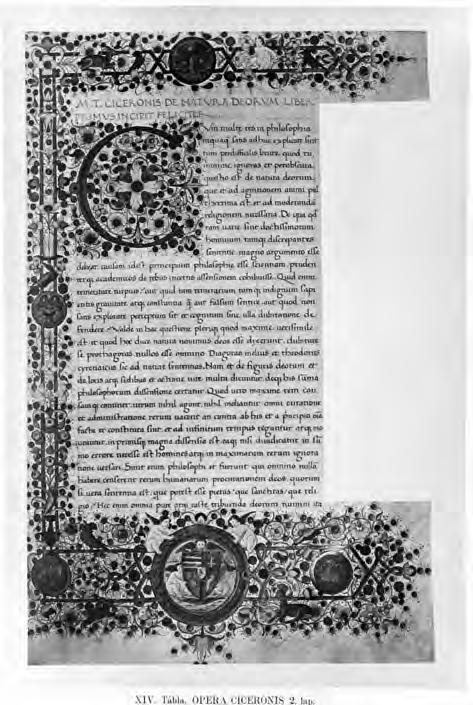 M. T. CICERONIS DE NATVRA DEORVM LIBER
PRIMVS INCIPIT FELICITER
Vm multe res in philosophia
nequaq satis adhuc explicate sint
tum perdifficilis brute quod tu
minime ignoras et perobscura
questio est de natura deorum,
que et ad agnitionem animi pul
cherrima est et ad moderandã
religionem necessaria. De qua qd
tam uarie sint doctissimorum
hominum tamq discrepantes
sententie magno argumento esse
debeat causam idest principium philosophie esse scientiam, pruden
terq academicos de rebus incertis assensionem cohibuisse. Quid enim
temeritate turpius aut quid tam temerarium tamq indignum sapi
entis grauitate atq constantia q aut falsum sentire aut quod non
satis explorate perceptum sit et cognitum sine ulla dubitatione de
fendere Valde in hac questione pleriq quod maxime uerisimile
est et quod hoc duce natura uenimus deos esse dixerunt. dubitare
se prothagoras nullos esse omnino Diagoras melius et theodorus
cyrenaicus sic ad nature sententias. Nam et de figuris deorum et
de locis atq sedibus et actione uite multa dicuntur deq his sũma
philosophorum dissensione certatur Quod uero maxime rem cau
samq continet utrum nihil agant nihil moliantur omni curatione
et administratione rerum uacent an contra ab his et a pricipio oĩa
facta et constituta sint et ad infinitum tempus regantur atq mo
ueantur in primisq magna dissensio est eaq nisi diiudicatur in sũ
mo errore necesse est homines atq in maximarum rerum ignora
tione uersari. Sunt enim philosophi et fuerunt qui omnino nullã
habere censerent rerum humanarum procurationem deos. quorum
si uera sententia est, que potest esse pietas que sanctitas que reli
gio Hec enim omnia pure atq caste tribuenda deorum numini ita
XIV. Tábla. OPERA CICERONIS 2. lap.